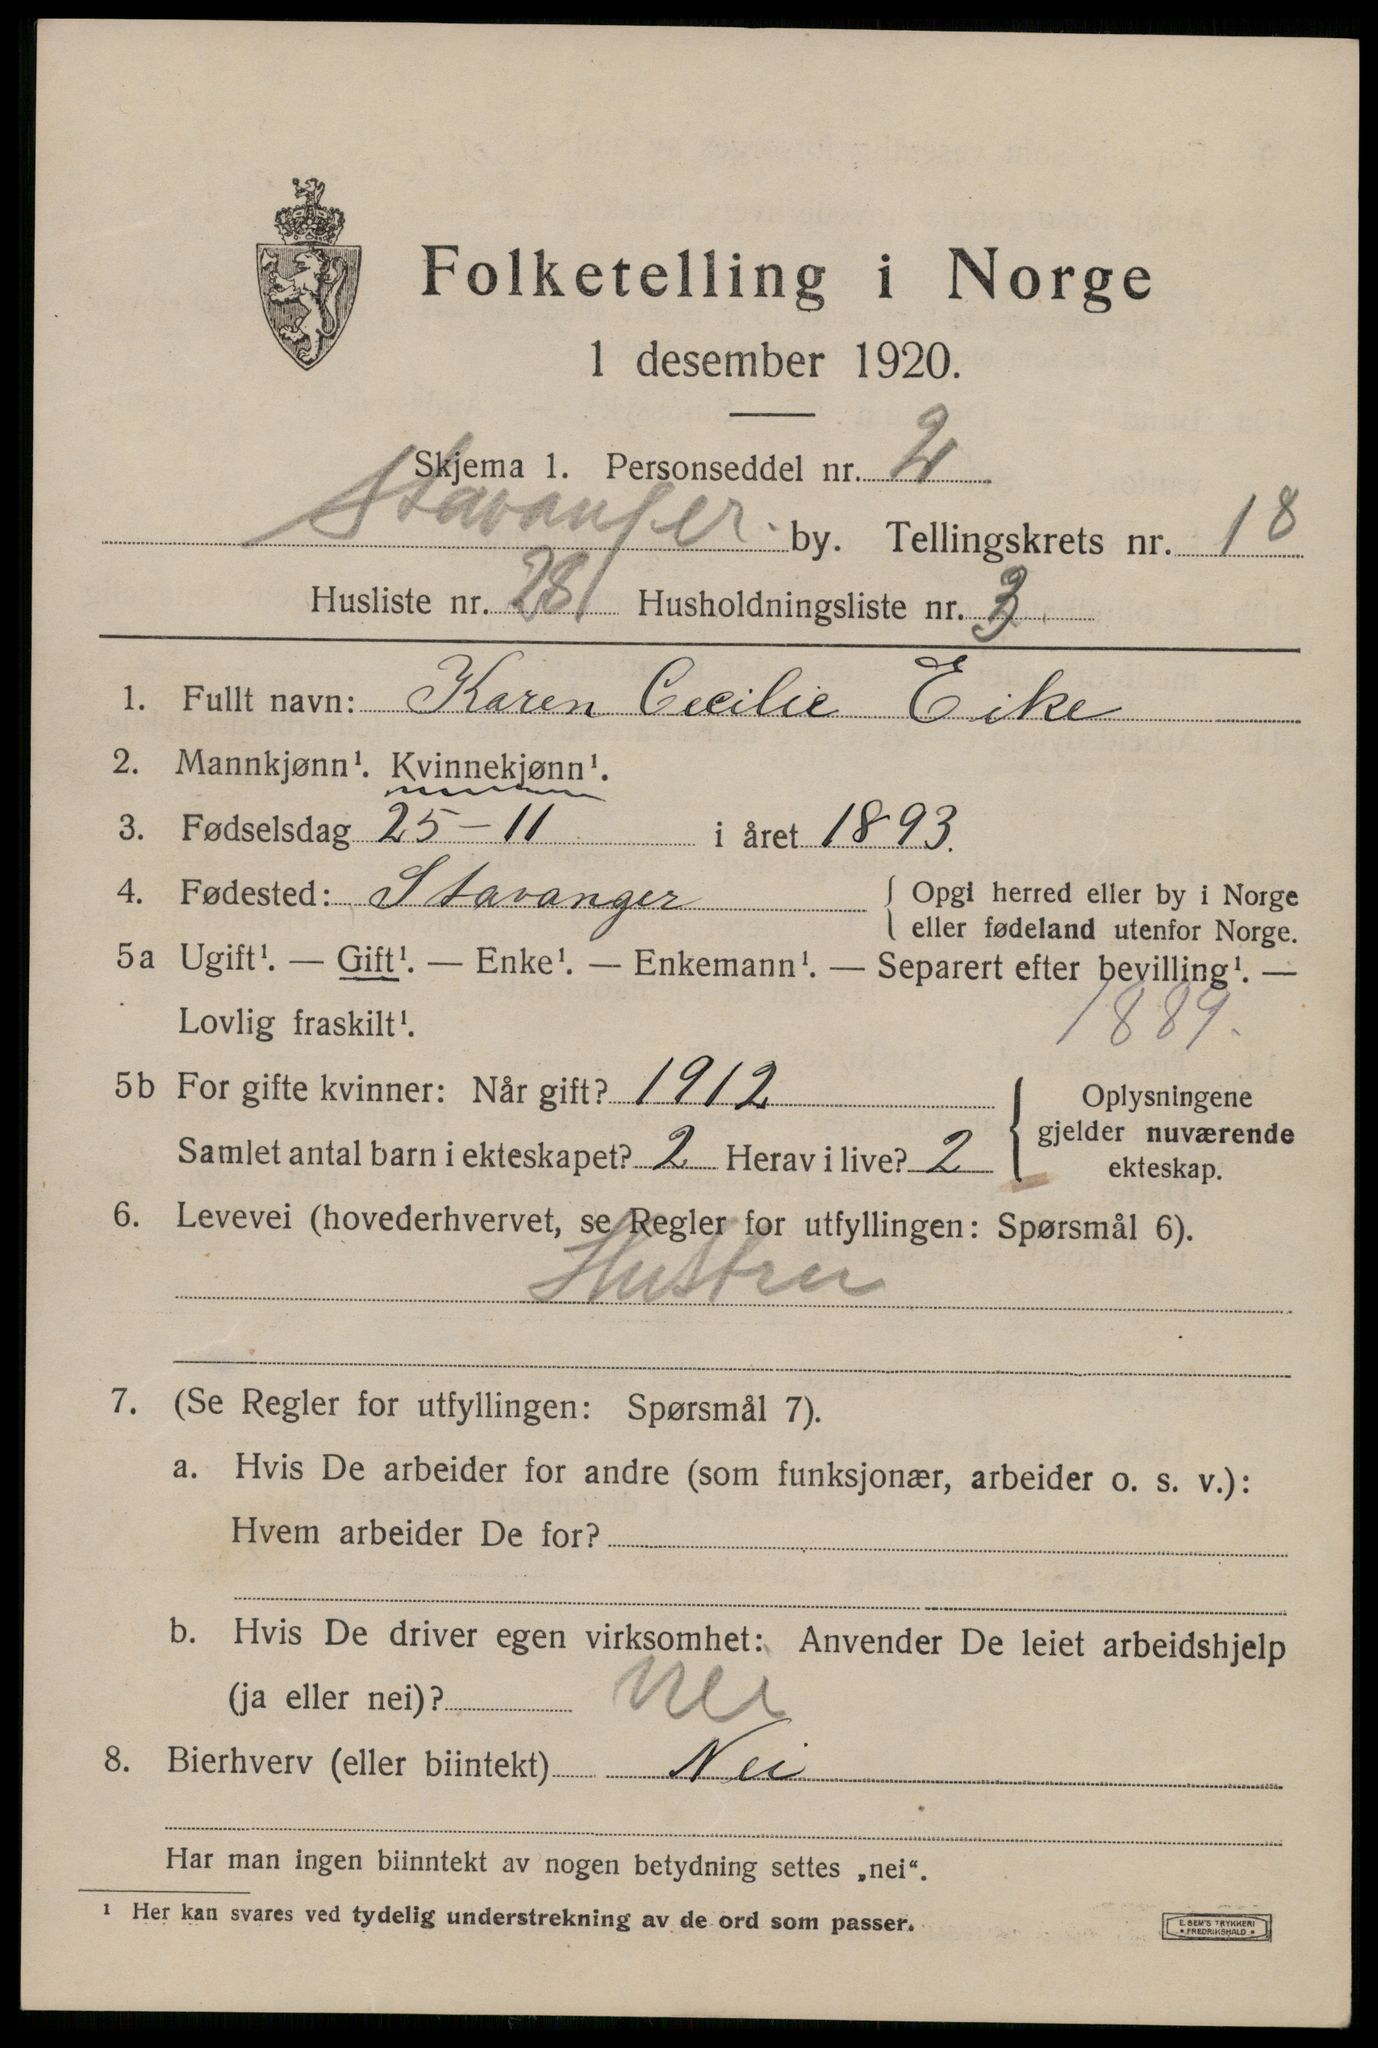 Folketelling i Norge
1 desember 1920.
Skjema 1. Personseddel nr. 2
Stavanger by. Tellingskrets nr. 18
Husliste nr. 281 Husholdningsliste nr. 3
1. Fullt navn: Karen Cecilie Eike
2. Mannkjønn¹. Kvinnekjønn¹.
3. Fødselsdag 25-11 i året 1893.
4. Fødested: Stavanger { Opgi herred eller by i Norge
eller fødeland utenfor Norge.
5a Ugift¹. — Gift¹. — Enke¹. — Enkemann¹. — Separert efter bevilling¹. —
Lovlig fraskilt¹. 1889.
5b For gifte kvinner: Når gift? 1912
Samlet antal barn i ekteskapet? 2 Herav i live? 2
{ Oplysningene
gjelder nuværende
ekteskap.
6. Levevei (hovederhvervet, se Regler for utfyllingen: Spørsmål 6).
Hustru
7. (Se Regler for utfyllingen: Spørsmål 7).
a. Hvis De arbeider for andre (som funksjonær, arbeider o. s. v.):
Hvem arbeider De for?
b. Hvis De driver egen virksomhet: Anvender De leiet arbeidshjelp
(ja eller nei)? Nei
8. Bierhverv (eller biintekt) Nei
Har man ingen biinntekt av nogen betydning settes „nei“.
¹ Her kan svares ved tydelig understrekning av de ord som passer.
E. SEM'S TRYKKERI
• FREDRIKSHALD •